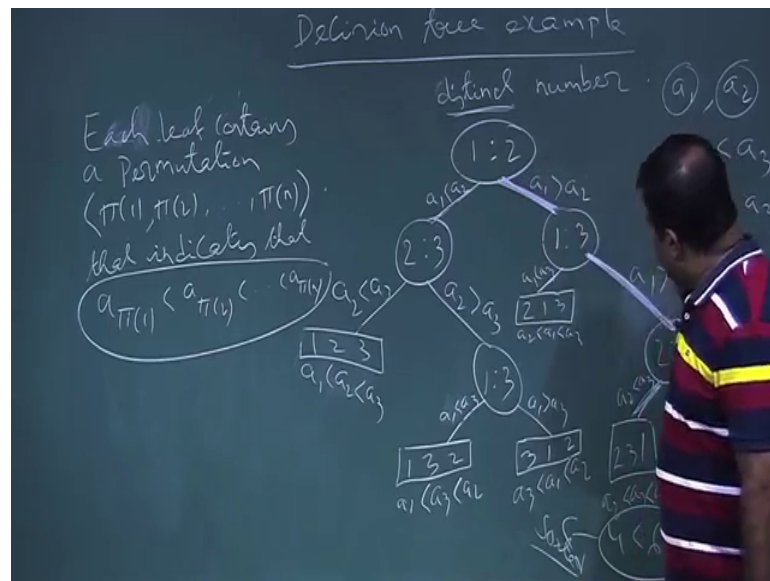 Decision tree example
distinct number. a1, a2
Each leaf contains
a Permutation
⟨π(1), π(2), ..., π(n)⟩.
that indicates that
aπ(1) < aπ(2) < ... < aπ(n)
< a3
a2
1:2
a1<a2
a1>a2
2:3
1:3
a2<a3
a2>a3
a1<a3
a1>
1 2 3
a1<a2<a3
2 1 3
a2<a1<a3
1:3
2:
a1<a3
a1>a3
a2<a3
1 3 2
a1<a3<a2
3 1 2
a3<a1<a2
2 3 1
4 < 6